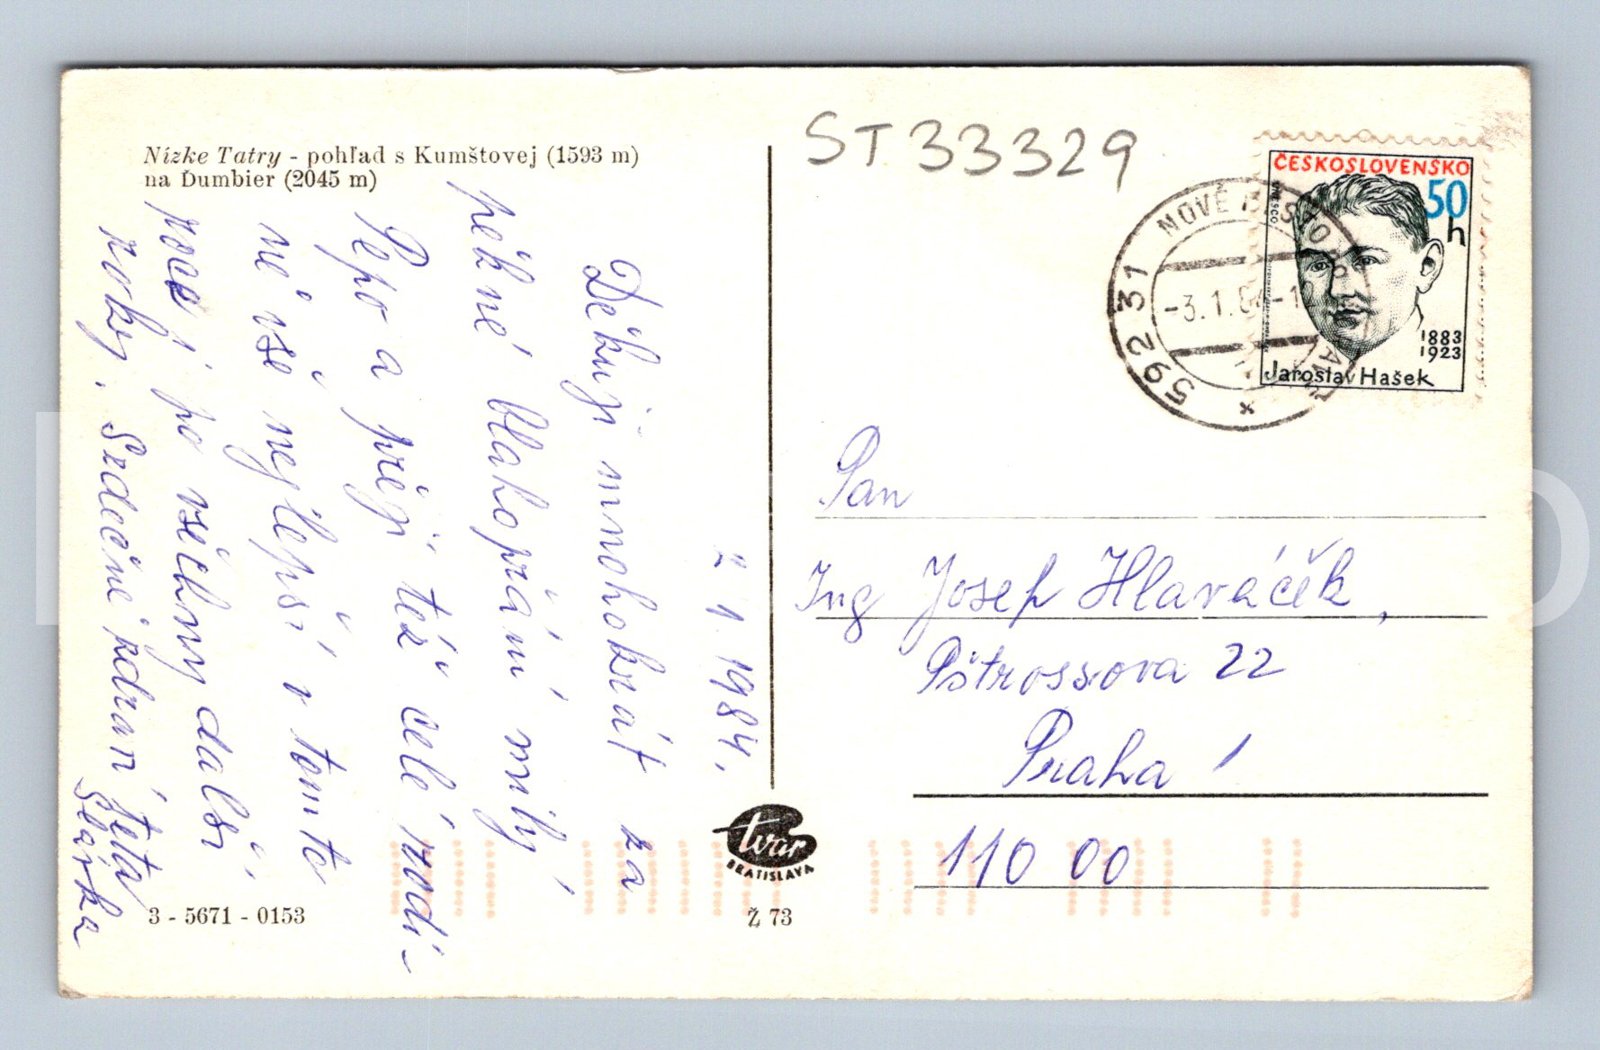 Nízke Tatry - pohľad s Kumštovej (1593 m)
na Ďumbier (2045 m)
2. 1. 1984.
Děkuji mnohokrát za
pěkné blahopřání milý
Pepo a přeji též celé rodi-
ně vše nejlepší v tomto
roce i po všechny další
roky. Srdečně zdraví teta
Slávka
3 - 5671 - 0153
tvar
BRATISLAVA
Ž 73
ST 33329
592 31 NOVÉ
-3.1.8
ČESKOSLOVENSKO
50
h
1883
1923
Jaroslav Hašek
Pan
Ing Josef Hlaváček,
Pštrossova 22
Praha 1
110 00